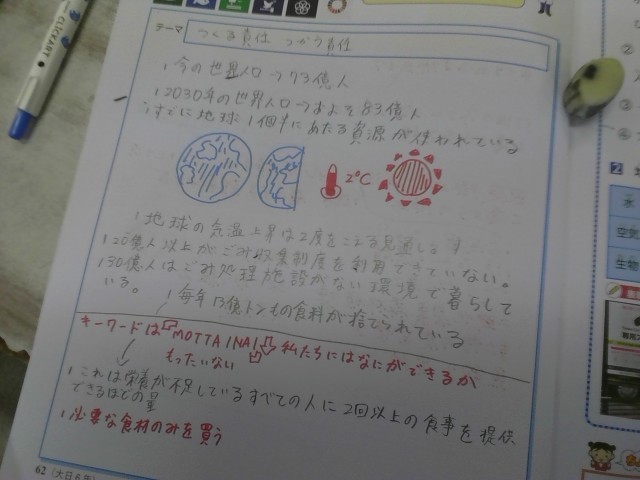 CLiCKART
テーマ つくる責任 つかう責任
今の世界人口→73億人
2030年の世界人口→およそ83億人
すでに地球1個半にあたる資源が使われている
2℃
地球の気温上昇は2度をこえる見通しです
20億人以上がごみ収集制度を利用できていない。
30億人はごみ処理施設がない環境で暮らして
いる。
毎年13億トンもの食料が捨てられている
キーワードは『MOTTAINAI』 私たちにはなにができるか
もったいない
これは栄養が不足しているすべての人に2回以上の食事を提供
できるほどの量
必要な食材のみを買う
62
水
空気
生物